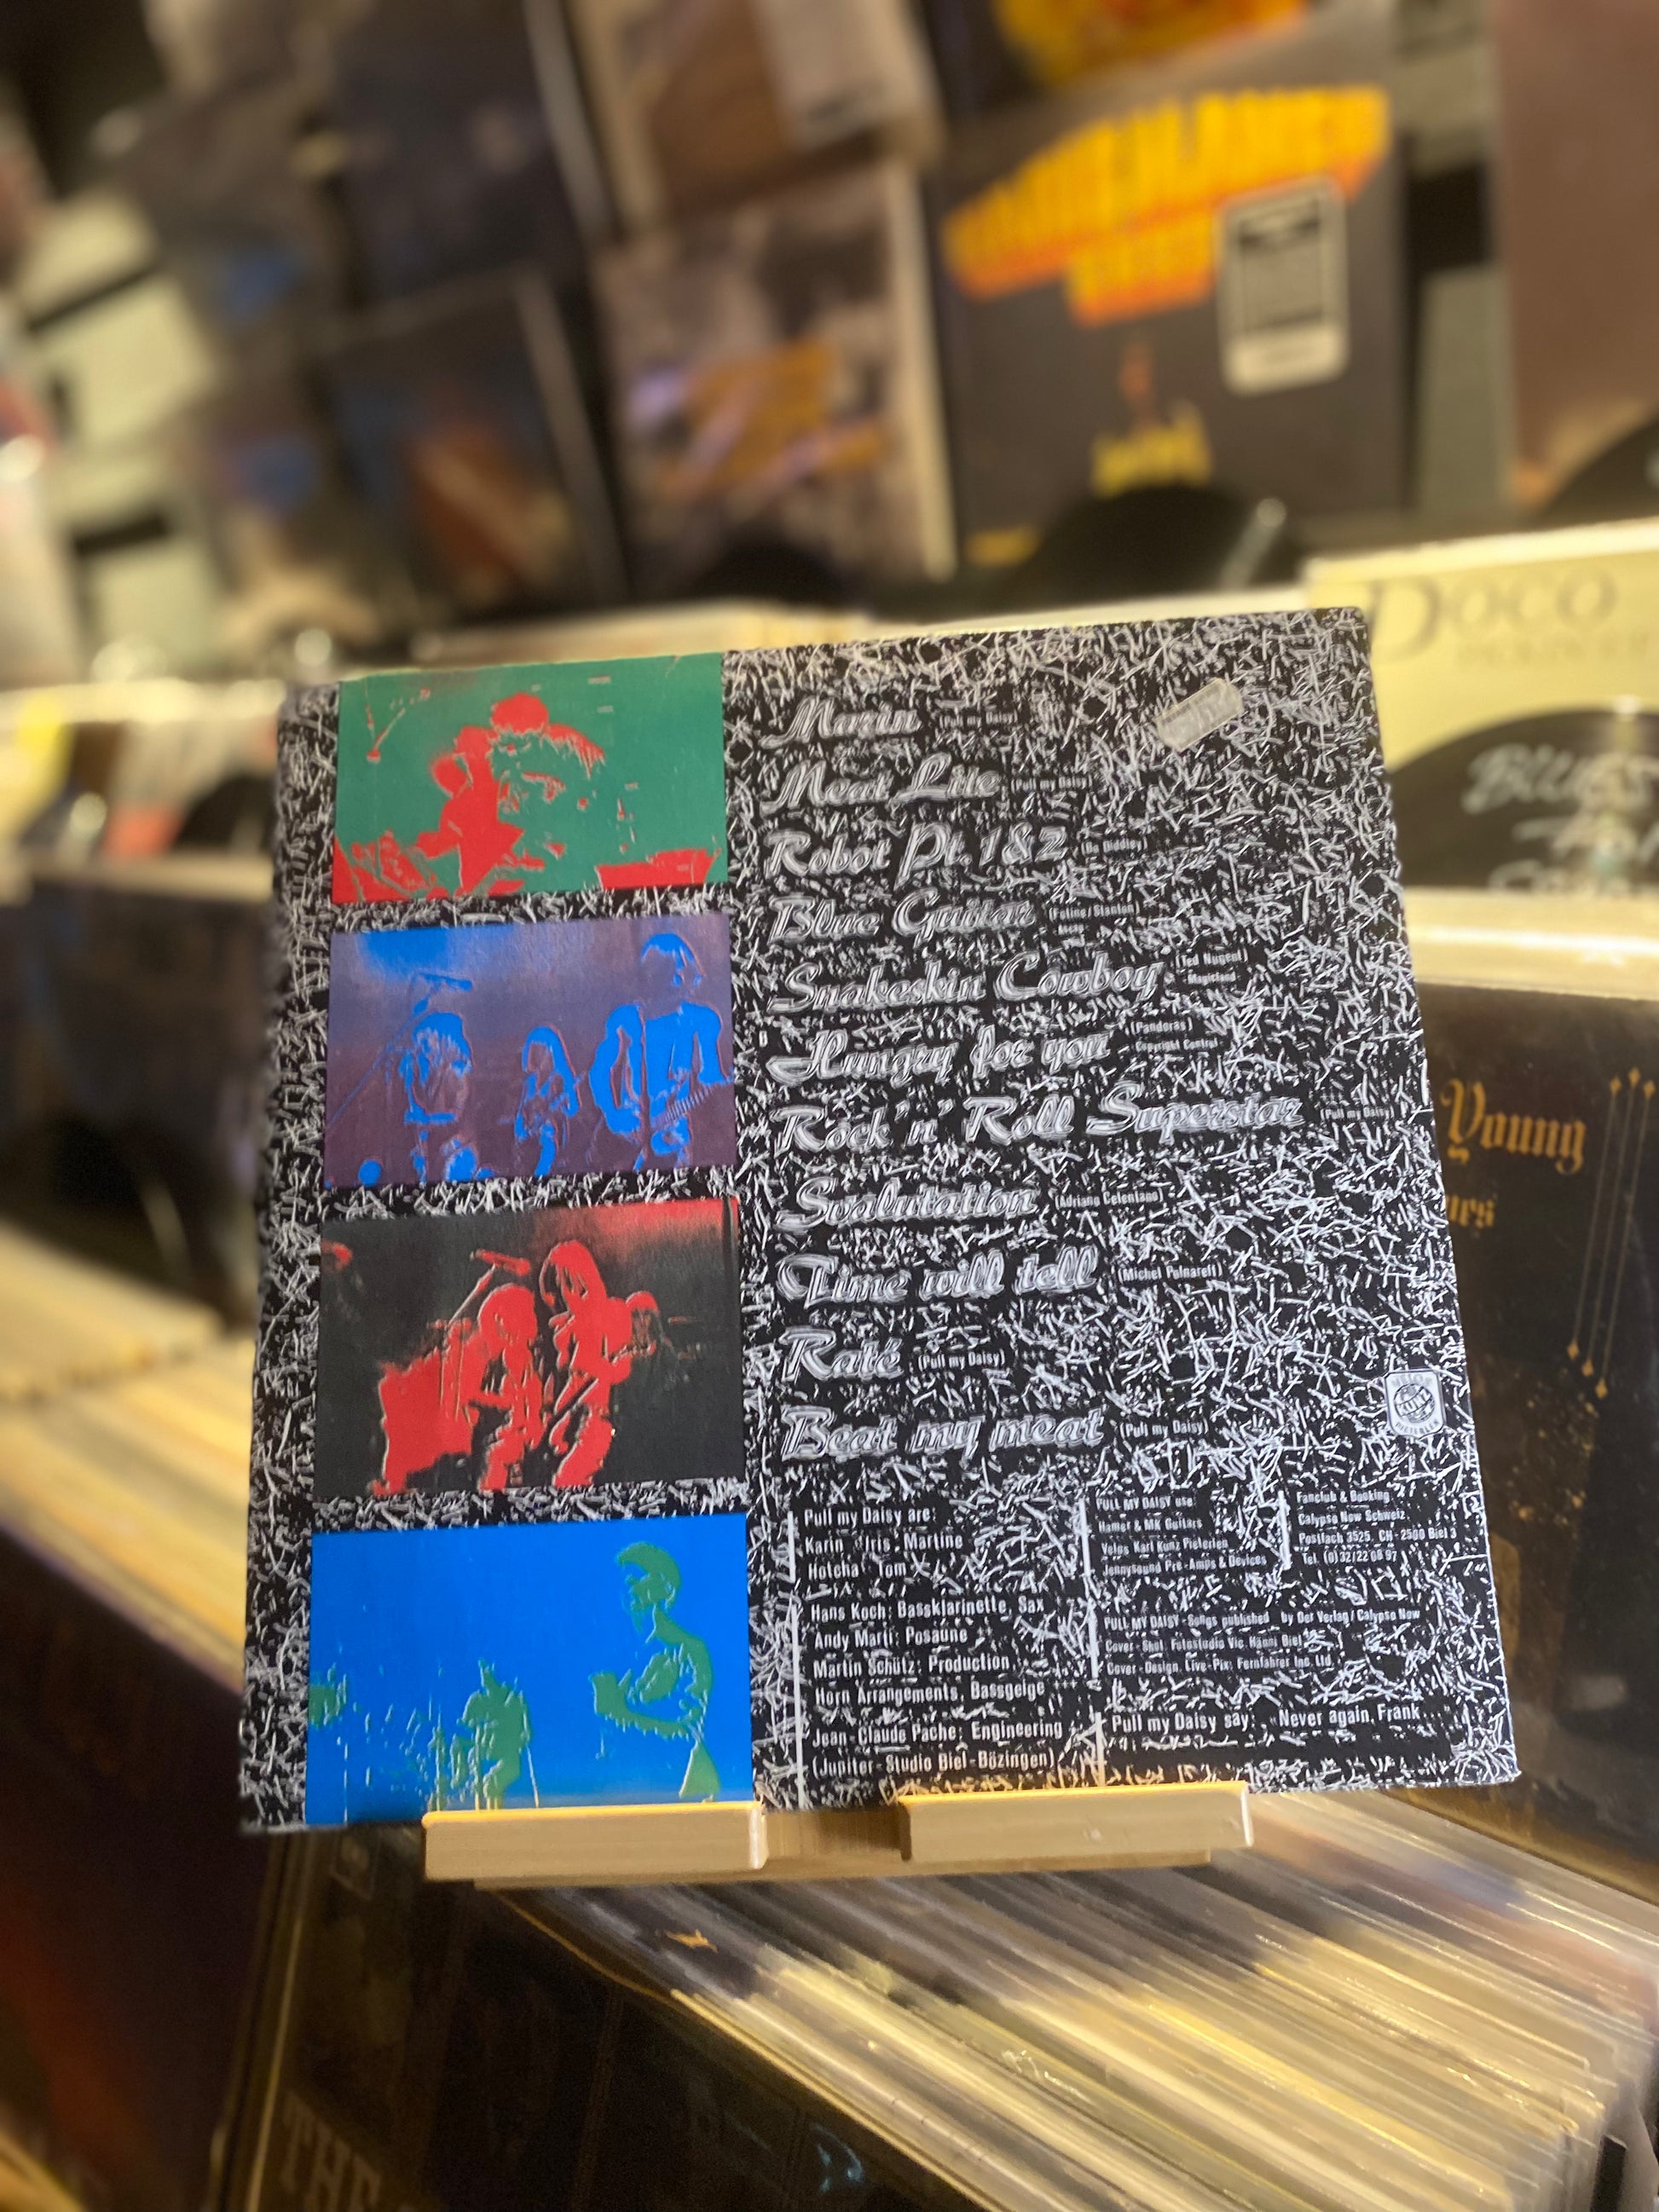 (Pull my Daisy)
Meat Lite (Pull my Daisy)
Robot Pt. 1 & 2 (Bo Diddley)
Blue Guitar (Feline/Stanton)
Snakeskin Cowboy (Ted Nugent)
Magicland
Hungry for you (Pandoras)
Copyright Control
Rock 'n' Roll Superstar (Pull my Daisy)
Svalutation (Adriano Celentano)
Time will tell (Michel Polnareff)
Raté (Pull my Daisy)
Beat my meat (Pull my Daisy)
Pull my Daisy are:
Karin Iris Martine
Hotcha Tom
Hans Koch: Bassklarinette, Sax
Andy Marti: Posaune
Martin Schütz: Production
Horn Arrangements, Bassgeige
Jean-Claude Pache: Engineering
(Jupiter-Studio Biel-Bözingen)
PULL MY DAISY use:
Hamer & MK Guitars
Velos Karl Kunz Pieterlen
Jennysound Pre-Amps & Devices
Fanclub & Booking
Calypso Now Schweiz
Postfach 3525, CH-2500 Biel 3
Tel. (0)32/22 06 97
PULL MY DAISY-Songs published by Der Verlag/Calypso Now
Cover-Shot: Fotostudio Vic. Hänni Biel
Cover-Design, Live-Pix: Fernfahrer Inc. Ltd
Pull my Daisy say: Never again, Frank
POCO
Blues
Young
THE